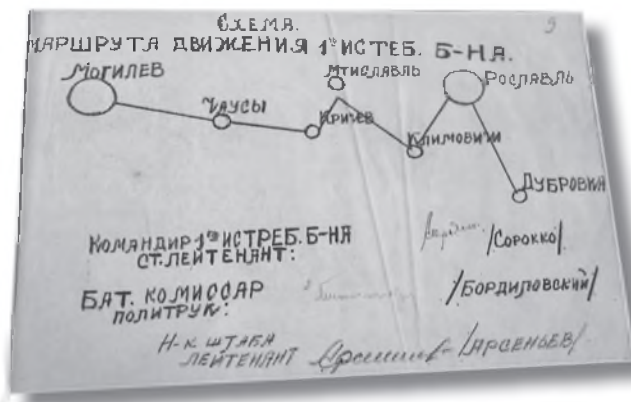 9
СХЕМА.
МАРШРУТА ДВИЖЕНИЯ 1го ИСТЕБ. Б-НА.
МОГИЛЕВ
МТИСЛАВЛЬ
РОСЛАВЛЬ
ЧАУСЫ
КРИЧЕВ
КЛИМОВИЧИ
ДУБРОВКА
КОМАНДИР 1го ИСТРЕБ. Б-НА
СТ. ЛЕЙТЕНАНТ: /СОРОККО/
БАТ. КОМИССАР
ПОЛИТРУК: /БОРДИЛОВСКИЙ/
Н-К ШТАБА
ЛЕЙТЕНАНТ /АРСЕНЬЕВ/